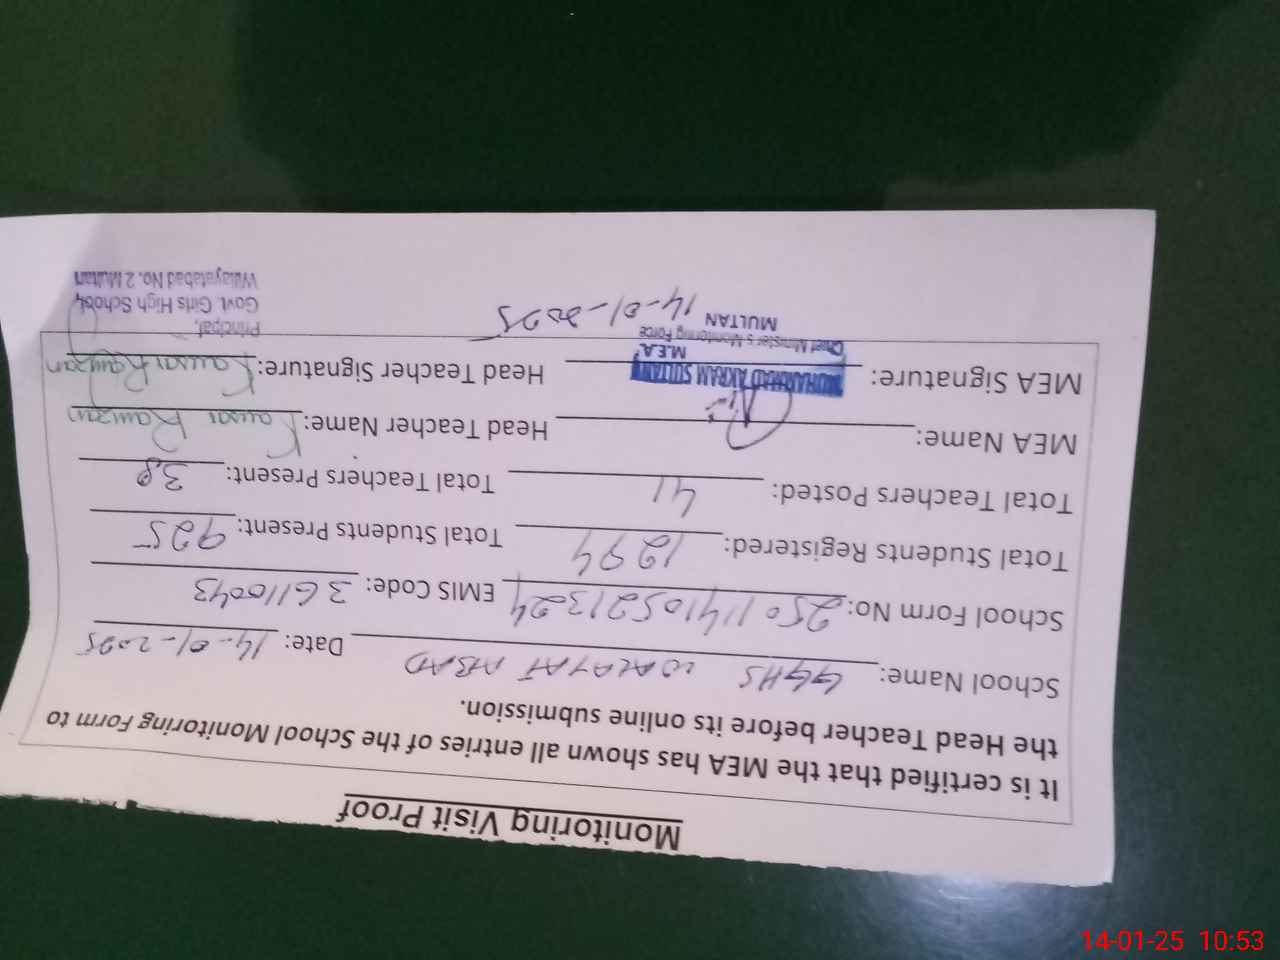 Monitoring Visit Proof
It is certified that the MEA has shown all entries of the School Monitoring Form to
the Head Teacher before its online submission.
School Name: GGHS WALAYAT ABAD Date: 14-01-2025
School Form No: 25011410521324 EMIS Code: 36110043
Total Students Registered: 1294 Total Students Present: 925
Total Teachers Posted: 41 Total Teachers Present: 38
MEA Name: Head Teacher Name: Kausar Ramzan
MEA Signature: MUHAMMAD AKRAM SULTAN Head Teacher Signature: Kausar Ramzan
M.E.A.
Chief Minister's Monitoring Force
MULTAN
14-01-2025
Principal,
Govt. Girls High School,
Walayatabad No. 2 Multan
14-01-25 10:53